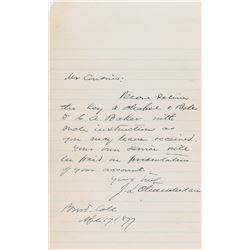 Mr Cousins:
Please deliver
the Log a Chabel & Bale
to C. A. Baker with
such instructions as
you may have received.
Your own service will
be paid on presentation
of your account.
Yours truly
J. L. Chamberlain
Bowd. Coll.
Apl. 17, 1877